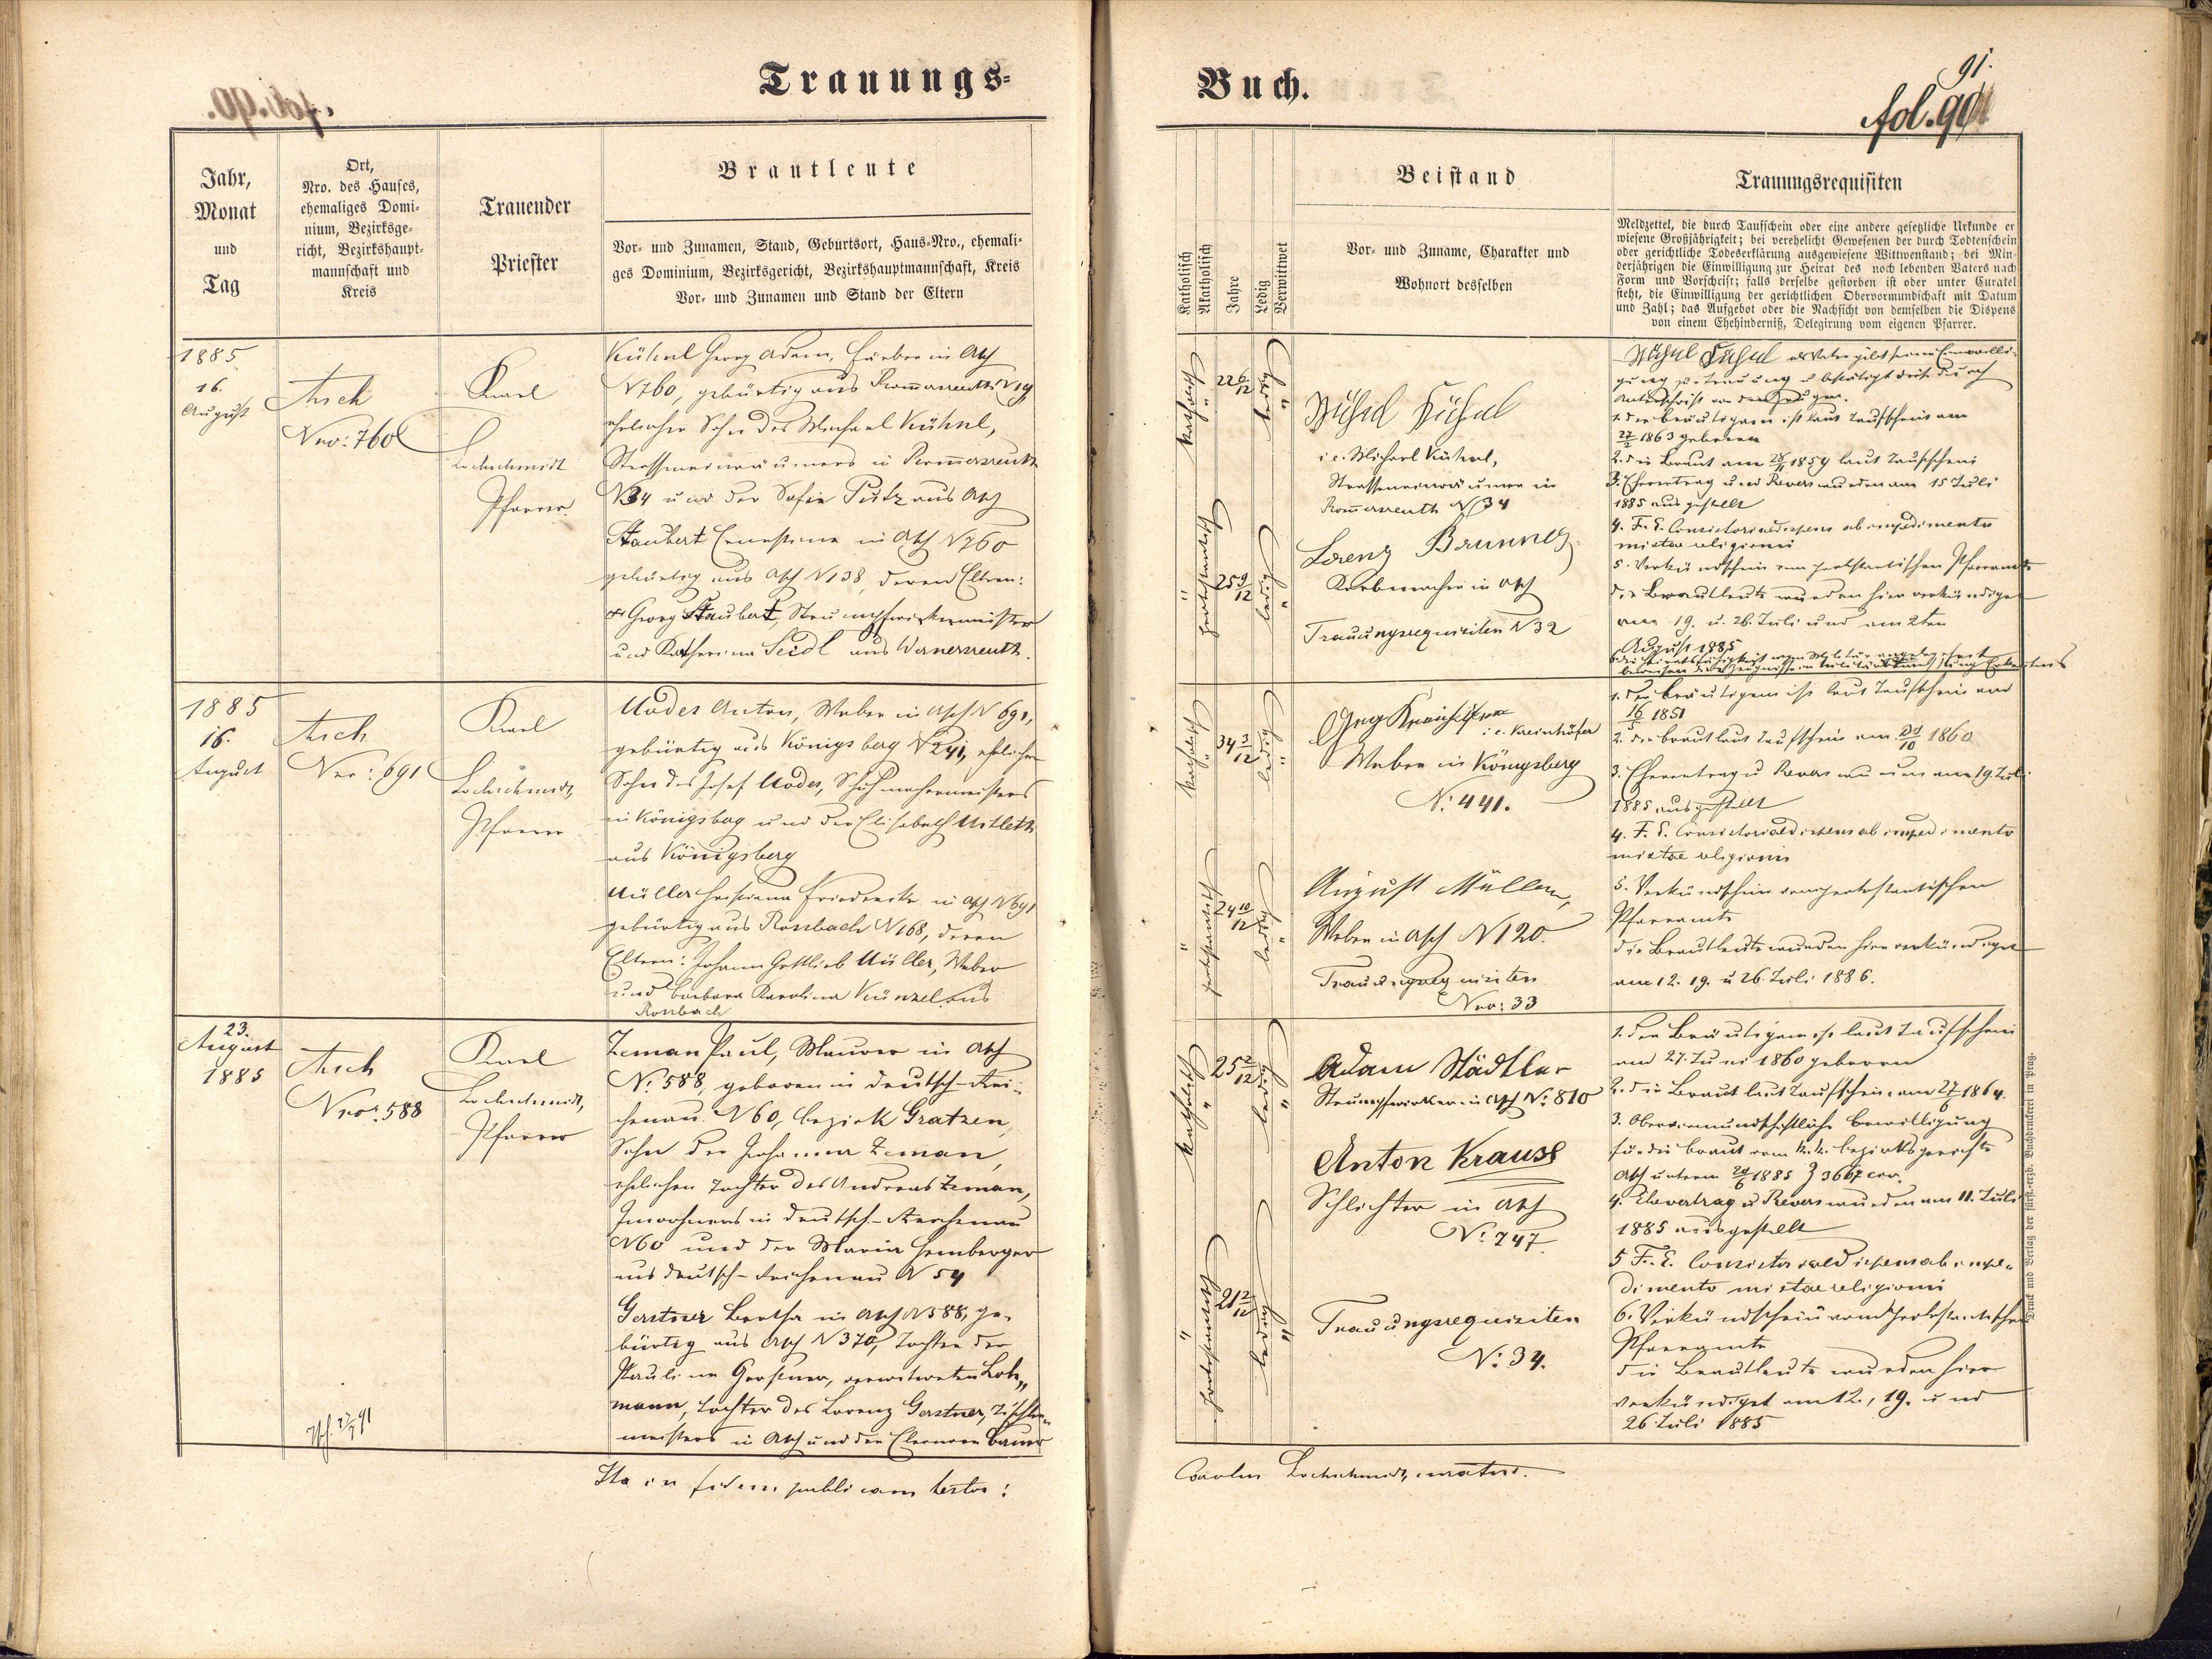 Trauungs-
Jahr,
Monat
und
Tag
Ort,
Nro. des Hauses,
ehemaliges Domi-
nium, Bezirksge-
richt, Bezirkshaupt-
mannschaft und
Kreis
Trauender
Priester
Brautleute
Vor- und Zunamen, Stand, Geburtsort, Haus-Nro., ehemali-
ges Dominium, Bezirksgericht, Bezirkshauptmannschaft, Kreis
Vor- und Zunamen und Stand der Eltern
1885
16.
August
Asch
Nro: 760
Karl
Lochschmidt
Pfarrer.
Kühnl Georg Adam, Färber in Asch
N 760, gebürtig aus Rommersreuth N 19
ehelicher Sohn des Michael Kühnl,
Strasseneinräumers in Rommersreuth
N 34 und der Sofie Putz aus Asch
Staubert Ernestine in Asch N 760
gebürtig aus Asch N 138, deren Eltern:
Georg Staubert, Strumpfwirkermeister
und Katharina Seidl aus Wernersreuth.
1885
16.
August
Asch
Nro: 691
Karl
Lochschmidt,
Pfarrer
Anton, Weber in Asch N 691,
gebürtig aus Königsberg N 241, ehelicher
Sohn des Josef, Schuhmachermeisters
in Königsberg und der Elisabeth
aus Königsberg
Müller Friederike in Asch N 691
gebürtig aus Rossbach N 168, deren
Eltern: Johann Gottlieb Müller, Weber
und Barbara Karolina Künzel aus
Rossbach
23.
August
1885
Asch
Nro: 588
Karl
Lochschmidt,
Pfarrer
Zeman Paul, Maurer in Asch
N: 588, geboren in Deutsch-Rei-
chenau N 60, Bezirk Gratzen,
Sohn der Johanna Zeman,
ehelichen Tochter des Andreas Zeman,
Inwohners in Deutsch-Reichenau
N 60 und der Maria Hemberger
aus Deutsch-Reichenau N 54
Gerstner Bertha in Asch N 588, ge-
bürtig aus Asch N 370, Tochter der
Pauline Gerstner, verwitweten Loh-
mann, Tochter des Lorenz Gerstner, Tischler-
meisters in Asch und der Eleonore Bauer
Ita in fidem publicam testor:
Buch.
91.
fol.
Katholisch
Akatholisch
Jahre
Ledig
Verwittwet
Beistand
Vor- und Zuname, Charakter und
Wohnort desselben
Trauungsrequisiten
Meldzettel, die durch Taufschein oder eine andere gesetzliche Urkunde er
wiesene Großjährigkeit; bei verehelicht Gewesenen der durch Todtenschein
oder gerichtliche Todeserklärung ausgewiesene Wittwenstand; bei Min-
derjährigen die Einwilligung zur Heirat des noch lebenden Vaters nach
Form und Vorschrift; falls derselbe gestorben ist oder unter Curatel
steht, die Einwilligung der gerichtlichen Obervormundschaft mit Datum
und Zahl; das Aufgebot oder die Nachsicht von demselben die Dispens
von einem Ehehinderniß, Delegirung vom eigenen Pfarrer.
katholisch
22 6/12
ledig
protestantisch
25 9/12
ledig
Michl Kühnl
i.e. Michael Kühnl,
Strasseneinräumer in
Rommersreuth N 34
Lorenz Brunner
Korbmacher in Asch
Trauungsrequisiten N 32
Michl Kühnl als Vater gibt seine Einwilli-
gung zur Trauung u bestätigt dies durch
Unterschrift vor den Zeugen.
1. Der Bräutigam ist laut Taufschein am
27/2 1863 geboren
2. Die Braut am 28/11 1859 laut Taufschein
3. Ehevertrag und Revers wurden am 15 Juli
1885 ausgestellt
4. F. E. Consistorialdispens ab impedimento
mixtae religionis
5. Verkündschein vom protestantischen Pfarramte
Die Brautleute wurden hier verkündiget
am 19. u. 26. Juli und am 2ten
August 1885
katholisch
34 3/12
ledig
protestantisch
24 10/12
ledig
Georg
i.e. Kreinhöfer
Weber in Königsberg
N: 441.
August Müller,
Weber in Asch N 120.
Trauungsrequisiten
Nro: 33
1. Der Bräutigam ist laut Taufschein am
16/5 1851
2. Die Braut laut Taufschein am 21/10 1860
3. Ehevertrag u Revers wurden am 19. Juli
1885 ausgestellt
4. F. E. Consistorialdispens ab impedimento
mixtae religionis
5. Verkündschein vom protestantischen
Pfarramte
Die Brautleute wurden hier verkündiget
am 12. 19. u 26. Juli 1886.
katholisch
25 2/12
ledig
protestantisch
21 2/12
ledig
Adam Städtler
Strumpfwirker in Asch N: 810
Anton Krauss
Schlichter in Asch
N: 747.
Trauungsrequisiten
N: 34.
1. Der Bräutigam ist laut Taufschein
am 27. Juni 1860 geboren
2. Die Braut laut Taufschein am 27/6 1864.
3. Obervormundschaftliche Bewilligung
für die Braut vom k. k. Bezirksgerichte
Asch unterm 24/6 1885 Z 3667 civ.
4. Ehevertrag u Revers wurden am 11. Juli
1885 ausgestellt
5 F. E. Consistorialdispens ab impe-
dimento mixtae religionis
6. Verkündschein vom protestantischen
Pfarramte
Die Brautleute wurden hier
verkündiget am 12., 19. und
26 Juli 1885
Carolus Lochschmidt, curatus.
Druck und Verlag der fürst.-erzb. Buchdruckerei in Prag.